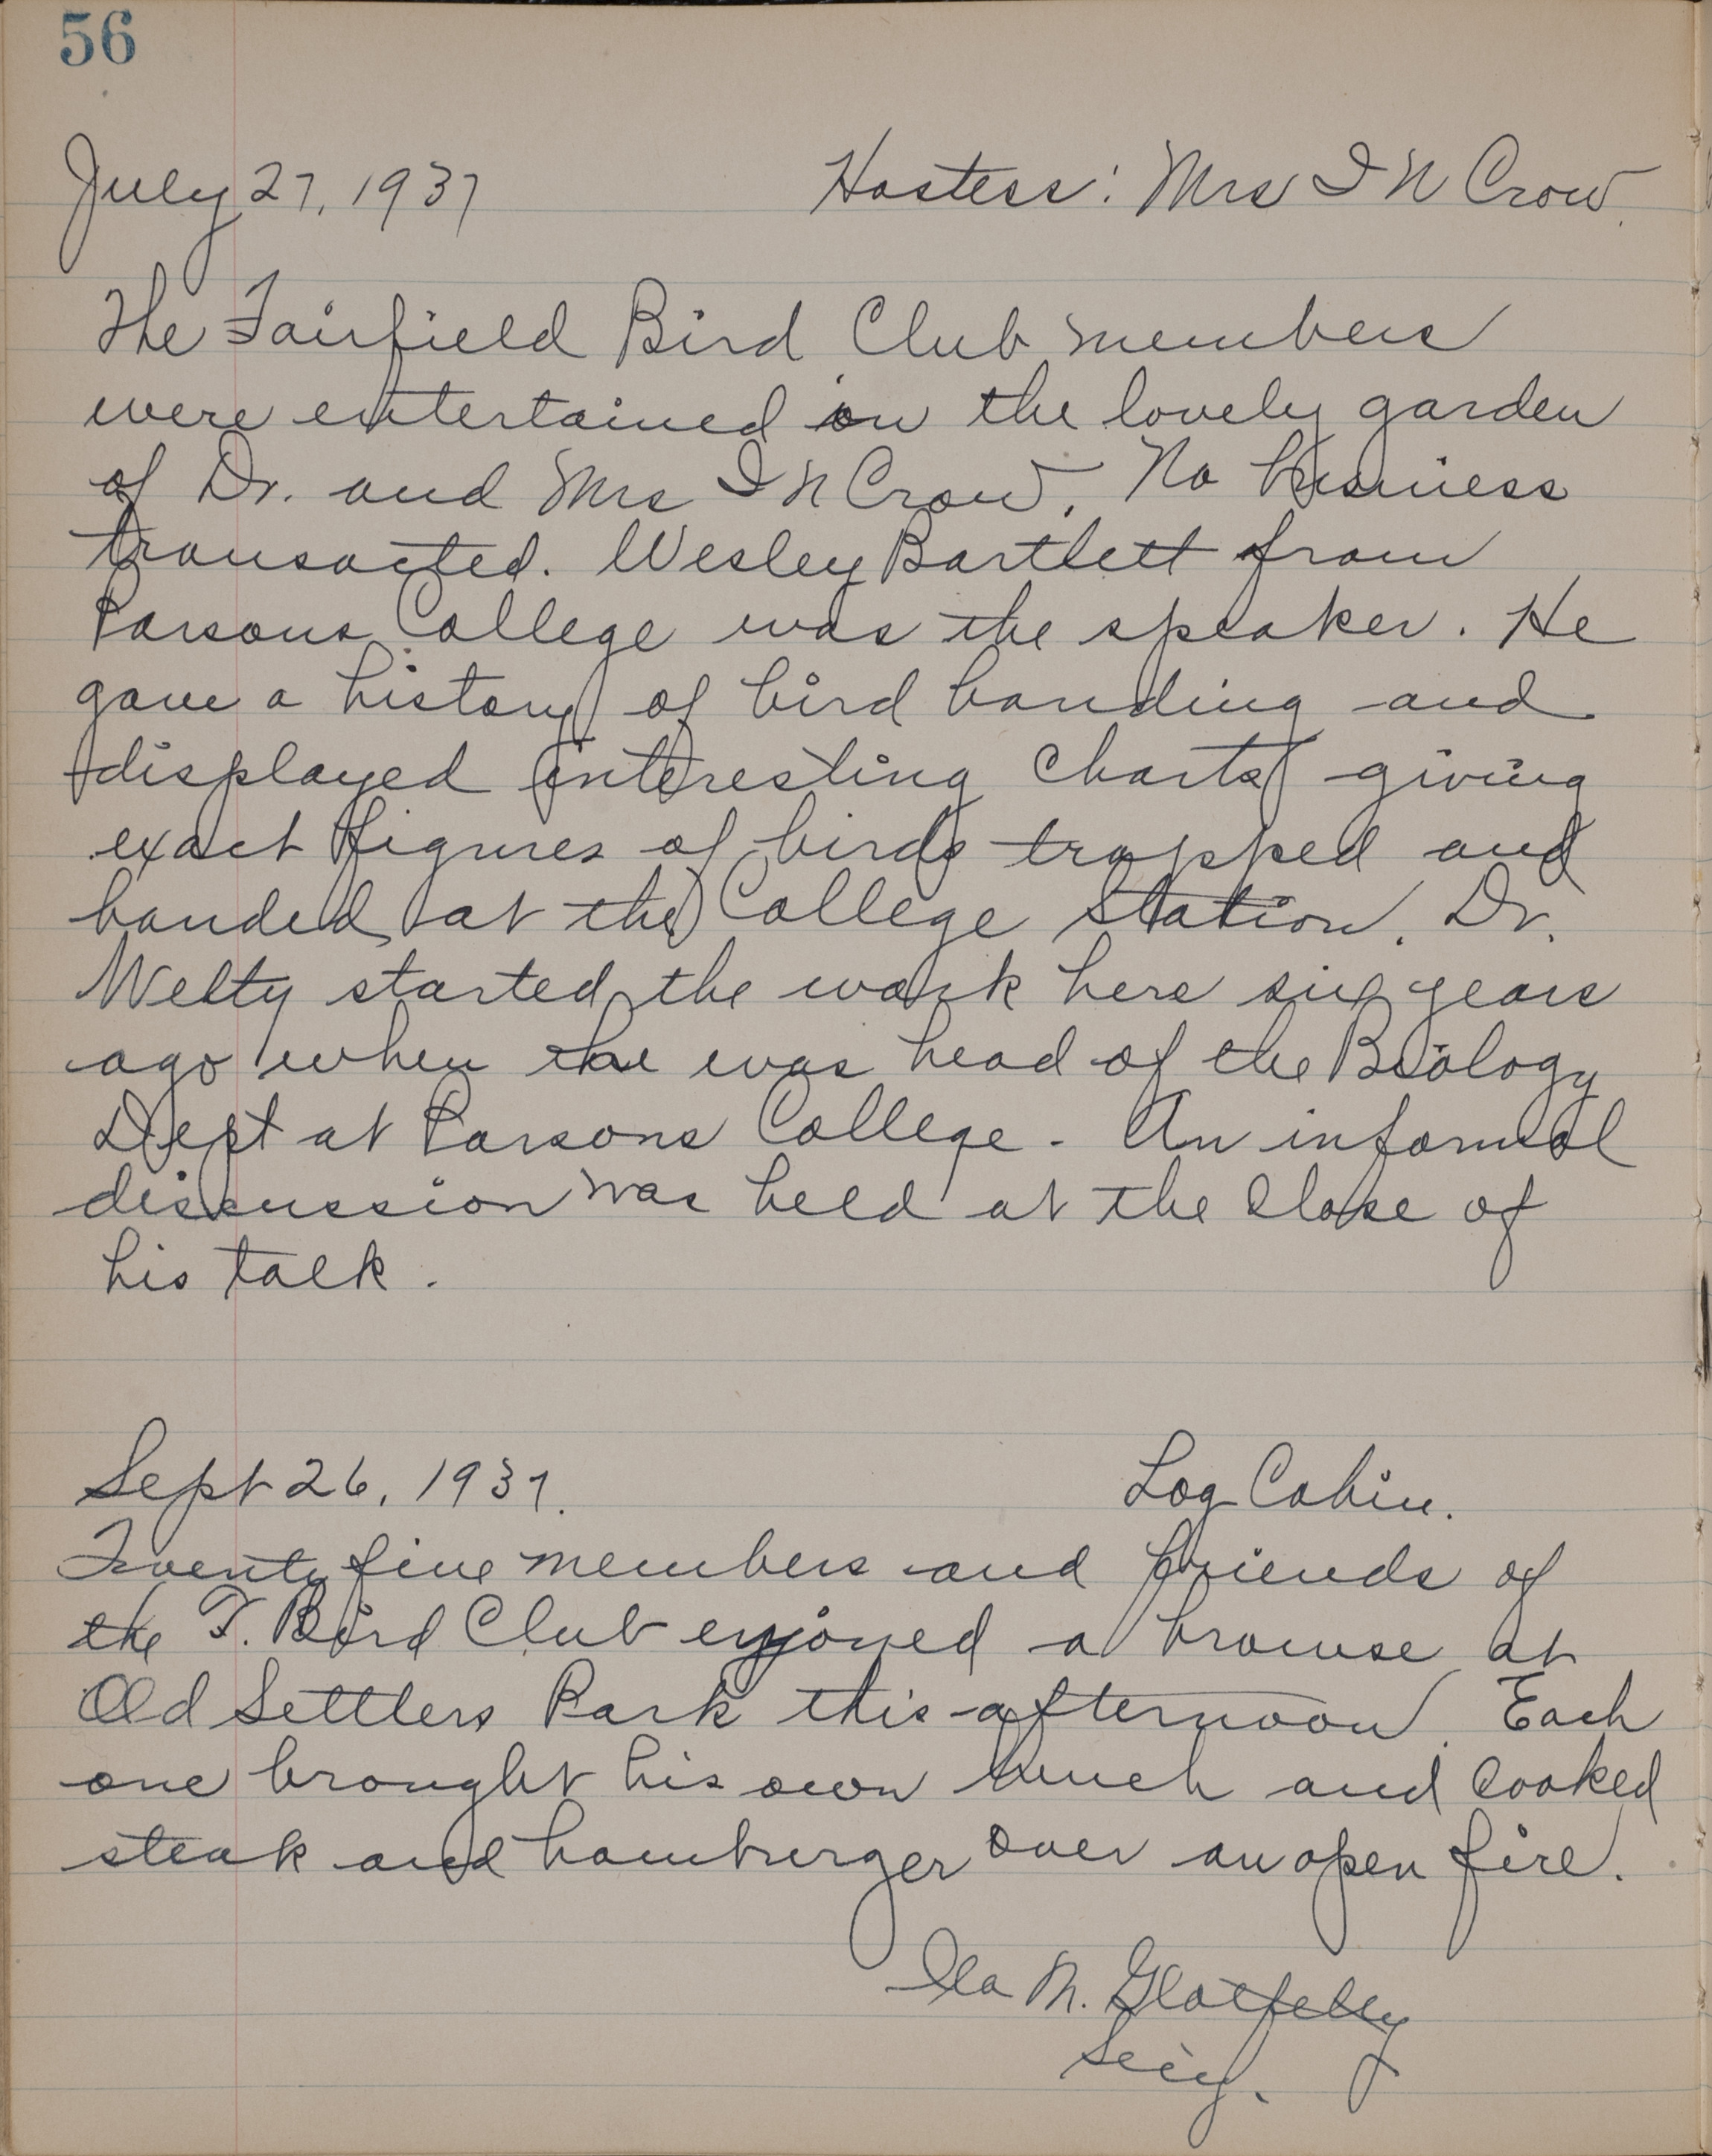 56
July 27, 1937 Hostess: Mrs I N Crow.
The Fairfield Bird Club members
were entertained in the lovely garden
of Dr. and Mrs I N Crow. No business
transacted. Wesley Bartlett from
Parsons College was the speaker. He
gave a history of bird banding and
displayed interesting charts giving
exact figures of birds trapped and
banded at the College Station. Dr.
Welty started the work here six years
ago when he was head of the Biology
Dept at Parsons College. An informal
discussion was held at the close of
his talk.
Sept 26, 1937. Log Cabin.
Twenty five members and friends of
the F. Bird Club enjoyed a browse at
Old Settlers Park this afternoon. Each
one brought his own lunch and cooked
steak and hamburger over an open fire.
Ila M. Glotfelty
Sec'y.